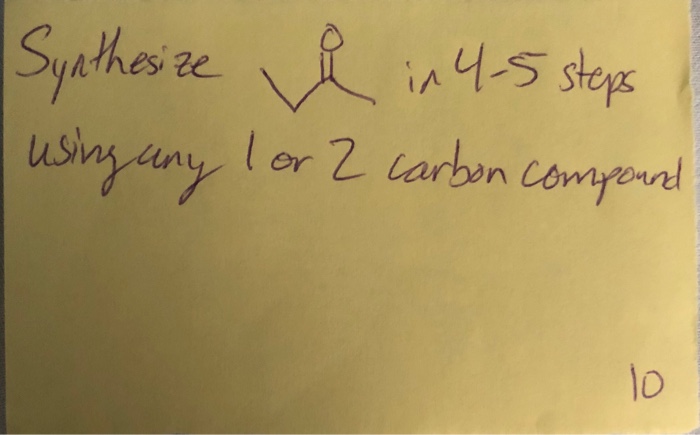 Synthesize in 4-5 steps
using any 1 or 2 carbon compound
10